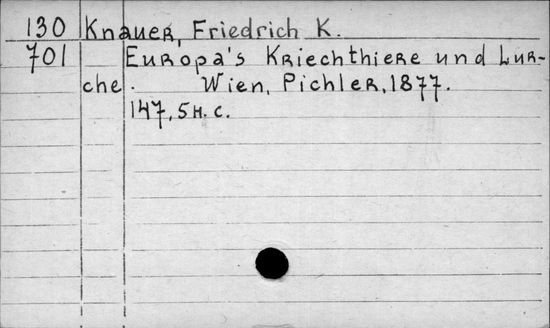 130 Knauer, Friedrich K.
701 Europa's Kriechthiere und Lur-
che. Wien, Pichler, 1877.
147, 5 н. с.